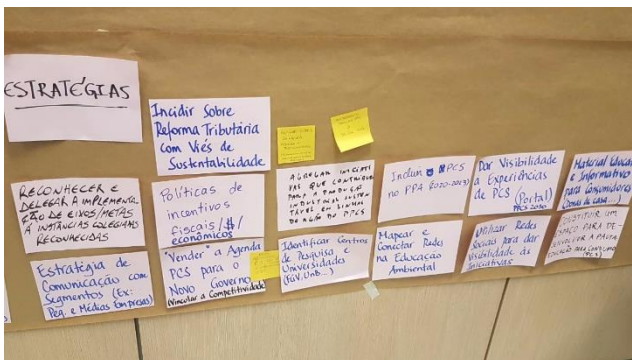 ESTRATÉGIAS
Incidir Sobre
Reforma Tributária
com Viés de
Sustentabilidade
RECONHECER E
DELEGAR A IMPLEMENTA
ÇÃO DE EIXOS/METAS
À INSTÂNCIAS COLEGIADAS
RECONHECIDAS
Políticas de
incentivos
fiscais/$/
econômicos
AGREGAR INICIATI
VAS QUE CONTRIBUEM
PARA A PRODUÇÃO
INDUSTRIAL SUSTEN
TÁVEL EM LINHAS
DE AÇÃO DO PPCS
Incluir o PCS
no PPA (2020-2023)
Dar Visibilidade
a Experiências
de PCS (Portal)
Material
e Informativo
para Consumidores
(Donas de casa...)
Estratégia de
Comunicação com
Segmentos (Ex:
Peq. e Médias Empresas)
"Vender" a Agenda
PCS para o
Novo Governo
(Vincular a Competitividade)
Identificar Centros
de Pesquisa e
Universidades
(FGV, UnB...)
Mapear e
Conectar Redes
na Educação
Ambiental
Utilizar Redes
Sociais para dar
Visibilidade às
Iniciativas
INSTITUIR UM
ESPAÇO PARA DE-
SENVOLVER A PAUTA